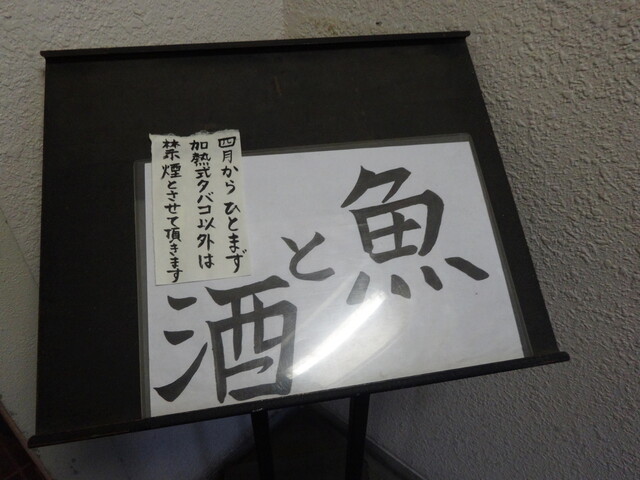 魚
と
酒
四月からひとまず
加熱式タバコ以外は
禁煙とさせて頂きます